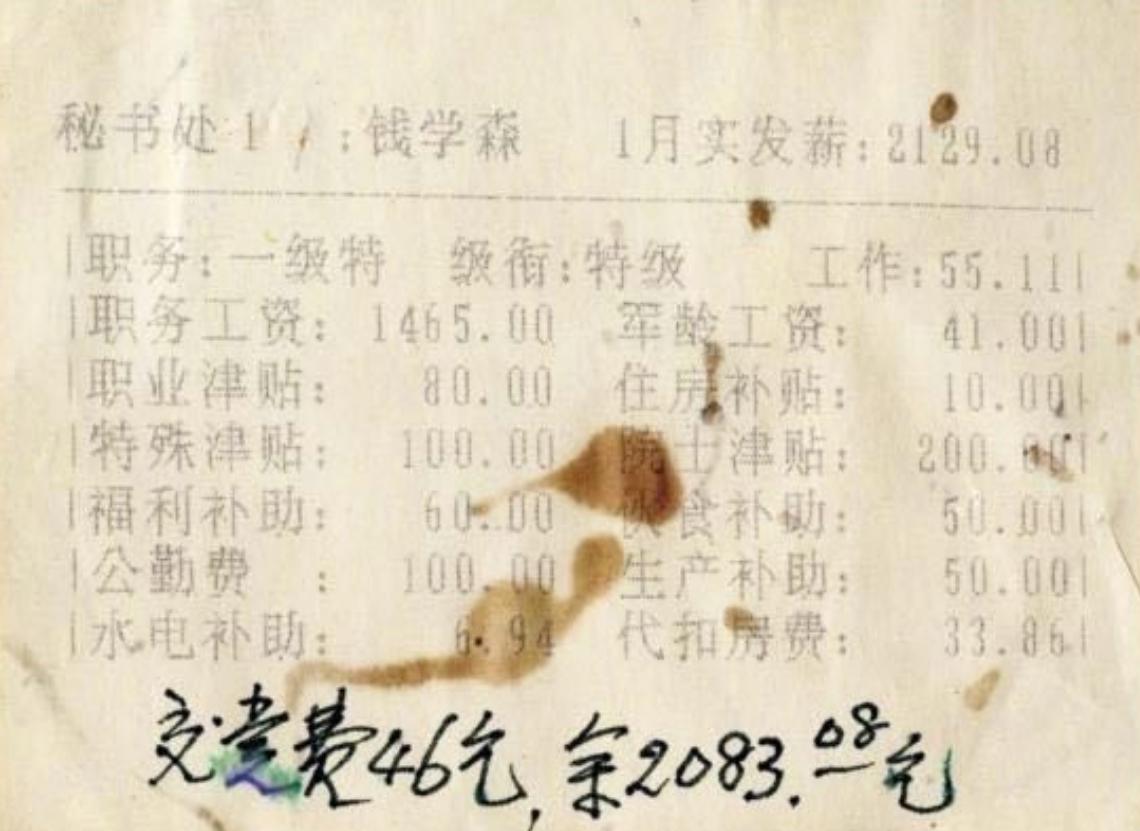 秘书处1 :钱学森 1月实发薪:2129.08
|职务:一级特 级衔:特级 工作:55.11|
|职务工资: 1465.00 军龄工资: 41.00|
|职业津贴: 80.00 住房补贴: 10.00|
|特殊津贴: 100.00 院士津贴: 200.00|
|福利补助: 60.00 伙食补助: 50.00|
|公勤费 : 100.00 生产补助: 50.00|
|水电补助: 6.94 代扣房费: 33.86|
交党费46元,余2083.08元